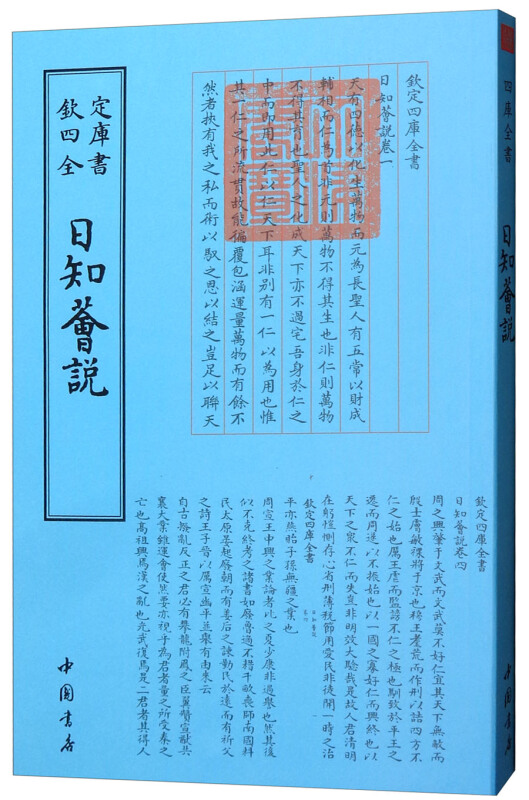 欽定
四庫
全書
日知薈說
中國書店
欽定四庫全書
日知薈說卷一
天有四德以化生萬物而元為長聖人有五常以財成
輔相而仁為首非元則萬物不得其生也非仁則萬物
不得其育也聖人之化成天下亦不過宅吾身於仁之
中而即用此仁以仁天下耳非别有一仁以為用也惟
其一仁之所流貫故能徧覆包涵運量萬物而有餘不
然者挾有我之私而術以馭之恩以結之豈足以聯天
欽定四庫全書
日知薈說卷四
周之興肇于文武而文武莫不好仁宜其天下無敵而
殷士膚敏祼將于京也穆王耄荒而作刑以詰四方不
仁之始也厲王虐而監謗不仁之極也馴致於平王之
遷而周遂以不振始也以一國之寡好仁而興終也以
天下之衆不仁而失豈非明效大驗哉是故人君清明
在躬愷惻存心省刑薄稅節用愛民非徒開一時之治
欽定四庫全書
平亦燕貽子孫無疆之業也
周宣王中興之業論者比之夏少康非過譽也然其後
似不克終考之諸書如廢魯適不措千畝喪師南國料
民太原晏起廢朝而有姜后之諫勤民於遠而有祈父
之詩王子晉以厲宣幽平並舉有由來云
自古撥亂反正之君必有攀龍附鳳之臣翼贊宣猷共
襄大業雖運會使然要亦視乎為君者量之所受秦之
亡也高祖興焉漢之亂也光武復焉是二君者其得人
四庫全書
日知薈說
中國書店